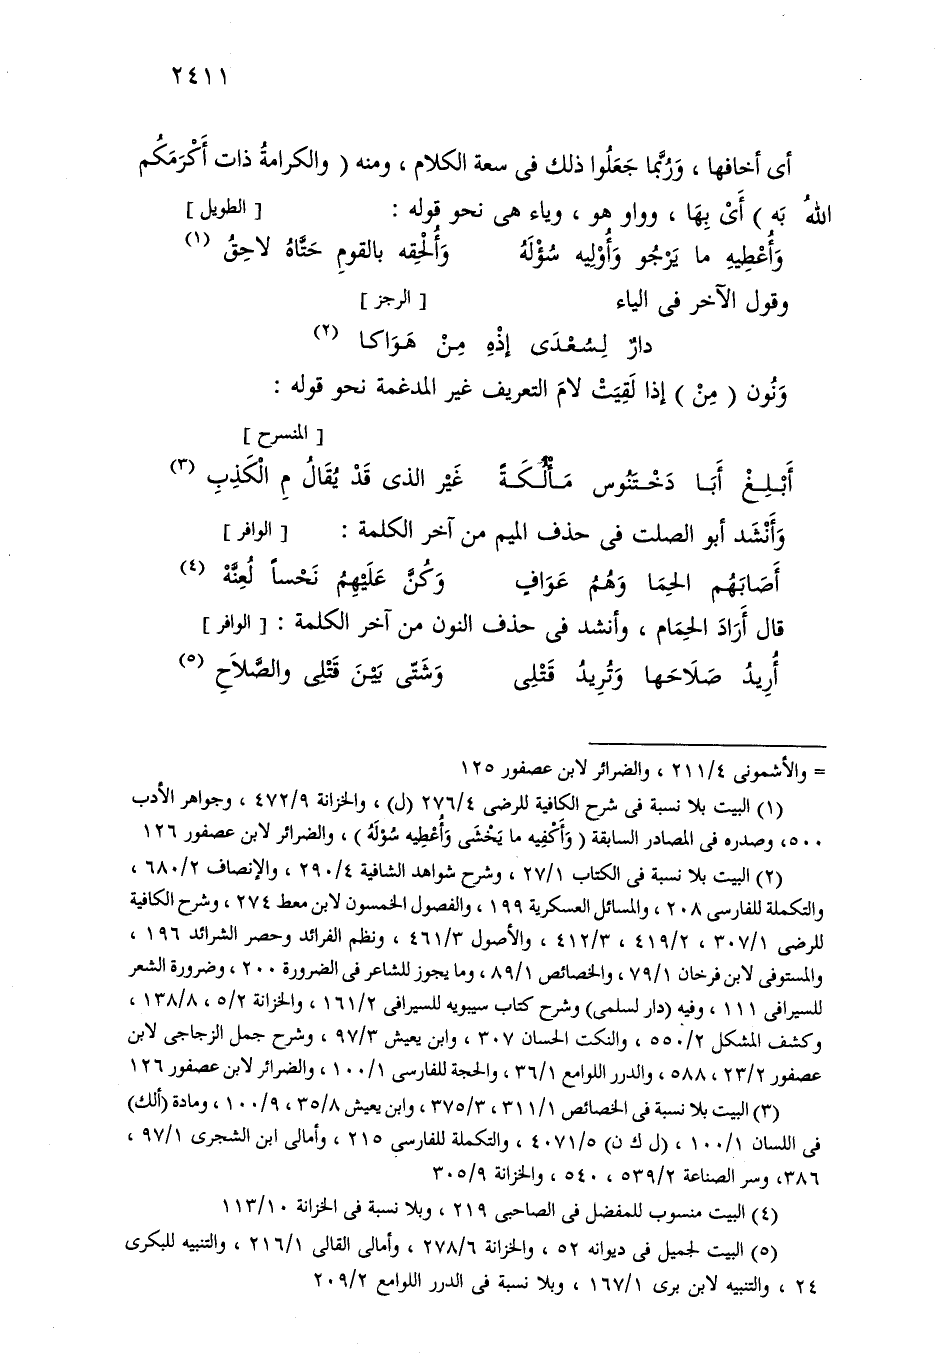 ٢٤١١
أى أخافها ، وَرُبَّما جَعَلُوا ذلك فى سعة الكلام ، ومنه ( والكرامةُ ذات أَكْرَمَكُم
اللهُ بَه ) أَىْ بِهَا ، وواو هو ، وياء هى نحو قوله : [ الطويل ]
وَأُعْطِيهِ ما يَرْجُو وَأُوْلِيه سُؤْلَهُ وَأُلْحِقه بالقومِ حَتَّاهُ لاحِقُ (١)
وقول الآخر فى الياء [ الرجز ]
دارٌ لِسُعْدَى إذْهِ مِنْ هَوَاكا (٢)
وَنُون ( مِنْ ) إذا لَقِيَتْ لامَ التعريف غير المدغمة نحو قوله :
[ المنسرح ]
أَبْلِغْ أَبَا دَخْتَنُوس مَأْلُكَةً غَيْر الذى قَدْ يُقَالُ مِ الْكَذِبِ (٣)
وَأَنْشَد أبو الصلت فى حذف الميم من آخر الكلمة : [ الوافر ]
أَصَابَهُم الحِمَا وَهُمُ عَوَافٍ وَكُنَّ عَلَيْهِمُ نَحْساً لُعِنَّهْ (٤)
قال أَرَادَ الحِمَام ، وأنشد فى حذف النون من آخر الكلمة : [ الوافر ]
أُرِيدُ صَلَاحَها وَتُرِيدُ قَتْلِى وَشَتَّى بَيْنَ قَتْلِى والصَّلاَحِ (٥)
= والأشمونى ٢١١/٤ ، والضرائر لابن عصفور ١٢٥
(١) البيت بلا نسبة فى شرح الكافية للرضى ٢٧٦/٤ (ل) ، والخزانة ٤٧٢/٩ ، وجواهر الأدب
٥٠٠، وصدره فى المصادر السابقة ( وَأَكْفِيه ما يَخْشَى وَأُعْطِيه سُؤْلَهُ ) ، والضرائر لابن عصفور ١٢٦
(٢) البيت بلا نسبة فى الكتاب ٢٧/١ ، وشرح شواهد الشافية ٢٩٠/٤ ، والإنصاف ٦٨٠/٢ ،
والتكملة للفارسى ٢٠٨ ، والمسائل العسكرية ١٩٩ ، والفصول الخمسون لابن معط ٢٧٤ ، وشرح الكافية
للرضى ٣٠٧/١ ، ٤١٩/٢ ، ٤١٢/٣ ، والأصول ٤٦١/٣ ، ونظم الفرائد وحصر الشرائد ١٩٦ ،
والمستوفى لابن فرخان ٧٩/١ ، والخصائص ٨٩/١ ، وما يجوز للشاعر فى الضرورة ٢٠٠ ، وضرورة الشعر
للسيرافى ١١١ ، وفيه (دار لسلمى) وشرح كتاب سيبويه للسيرافى ١٦١/٢ ، والخزانة ٥/٢ ، ١٣٨/٨ ،
وكشف المشكل ٥٥٠/٢ ، والنكت الحسان ٣٠٧ ، وابن يعيش ٩٧/٣ ، وشرح جمل الزجاجى لابن
عصفور ٢٣/٢ ، ٥٨٨ ، والدرر اللوامع ٣٦/١ ، والحجة للفارسى ١٠٠/١ ، والضرائر لابن عصفور ١٢٦
(٣) البيت بلا نسبة فى الخصائص ٣١١/١ ، ٣٧٥/٣ ، وابن يعيش ٣٥/٨ ، ١٠٠/٩ ، ومادة (ألك)
فى اللسان ١٠٠/١ ، (ل ك ن) ٤٠٧١/٥ ، والتكملة للفارسى ٢١٥ ، وأمالى ابن الشجرى ٩٧/١ ،
٣٨٦، وسر الصناعة ٥٣٩/٢ ، ٥٤٠ ، والخزانة ٣٠٥/٩
(٤) البيت منسوب للمفضل فى الصاحبى ٢١٩ ، وبلا نسبة فى الخزانة ١١٣/١٠
(٥) البيت لجميل فى ديوانه ٥٢ ، والخزانة ٢٧٨/٦ ، وأمالى القالى ٢١٦/١ ، والتنبيه للبكرى
٢٤ ، والتنبيه لابن برى ١٦٧/١ ، وبلا نسبة فى الدرر اللوامع ٢٠٩/٢